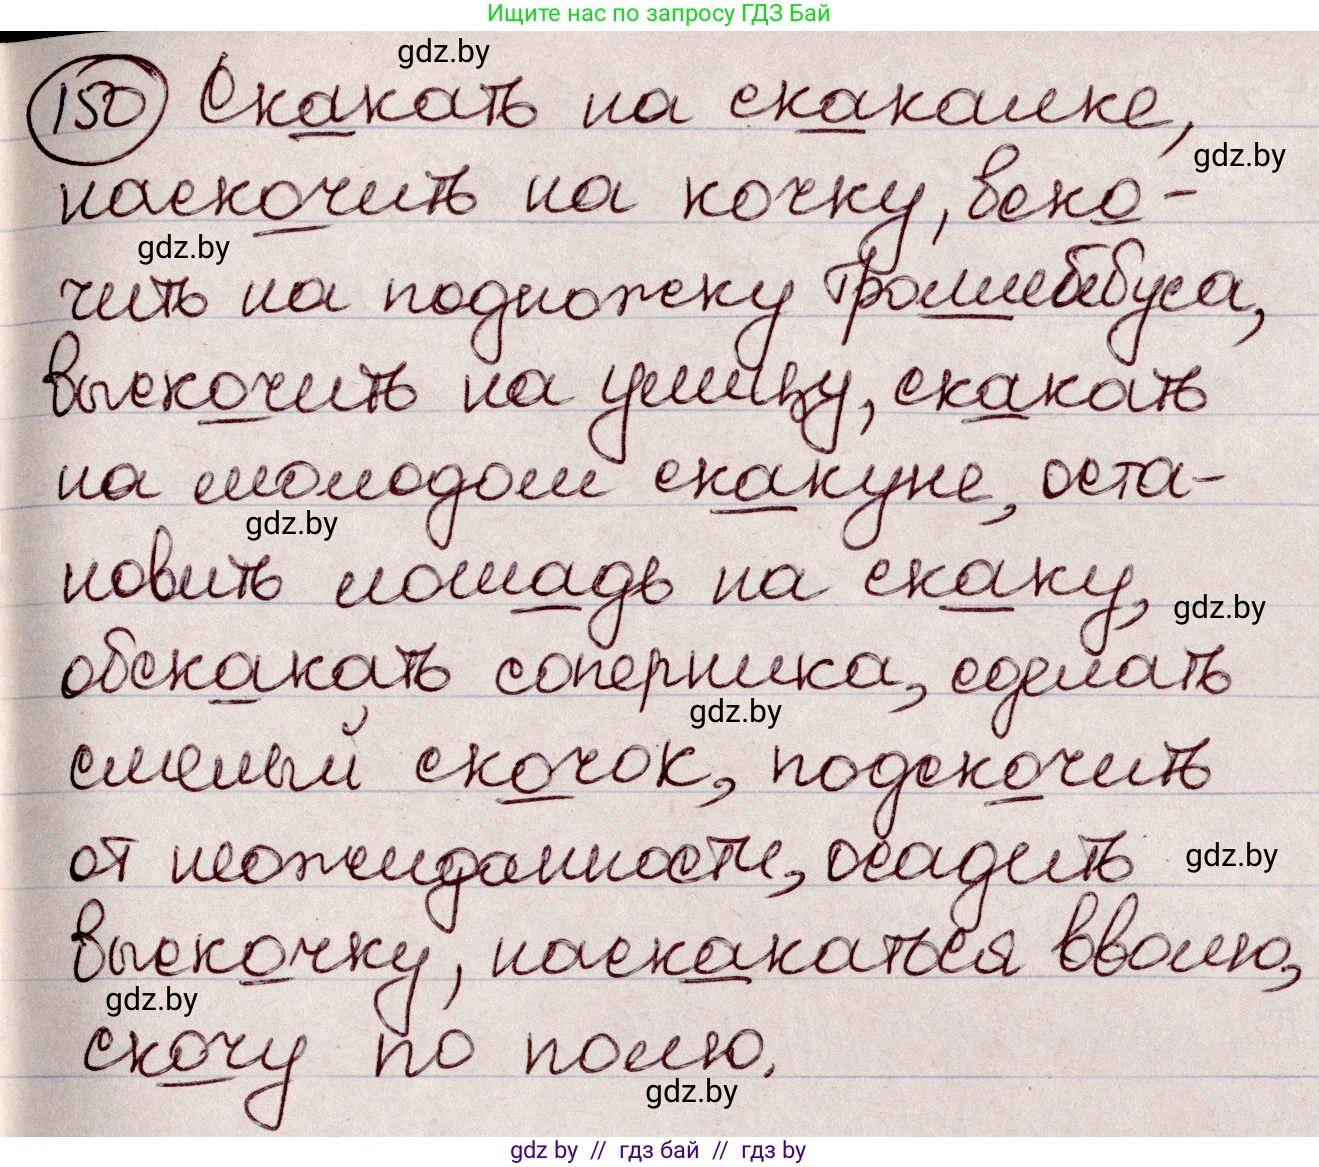 Ищите нас по запросу ГДЗ Бай
gdz.by
150 Скакать на скакалке,
gdz.by
наскочить на кочку, вско-
gdz.by
чить на подножку троллейбуса,
выскочить на улицу, скакать
на молодом скакуне, оста-
gdz.by
новить лошадь на скаку,
gdz.by
обскакать соперника, сделать
gdz.by
смелый скочок, подскочить
от неожиданности, осадить
gdz.by
выскочку, наскакаться вволю,
gdz.by
скочу по полю.
gdz.by
gdz by // гдз бай // gdz by